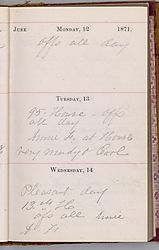 JUNE MONDAY, 12 1871.
offs all day
TUESDAY, 13
95 House - offs
all day
Annie H. at House
very muddy & Cool
WEDNESDAY, 14
Pleasant day
13th Ho
offs all
A H